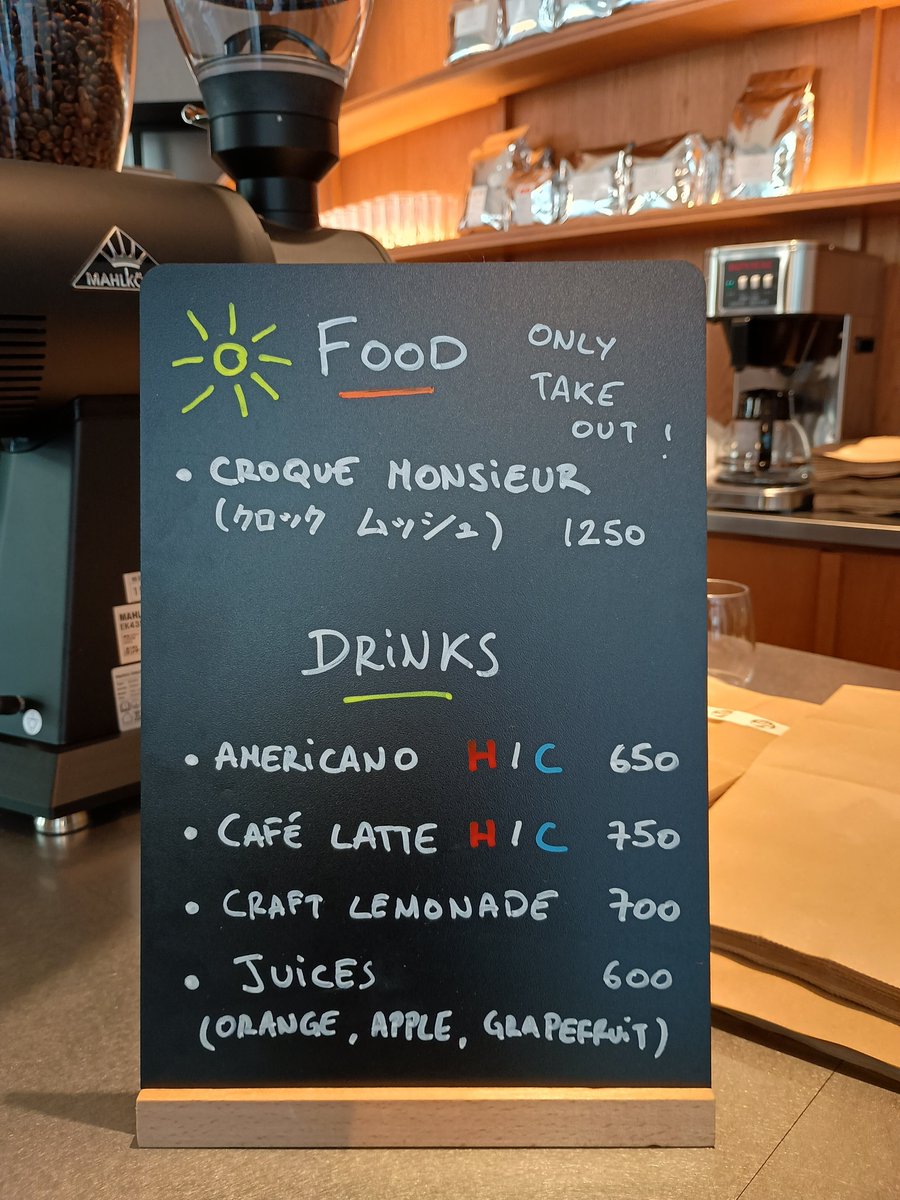 MAHLKÖ
FOOD
ONLY
TAKE
OUT !
• CROQUE MONSIEUR
(クロック ムッシュ) 1250
DRINKS
• AMERICANO H / C 650
• CAFÉ LATTE H / C 750
• CRAFT LEMONADE 700
• JUICES 600
(ORANGE, APPLE, GRAPEFRUIT)
MAHL
EK43